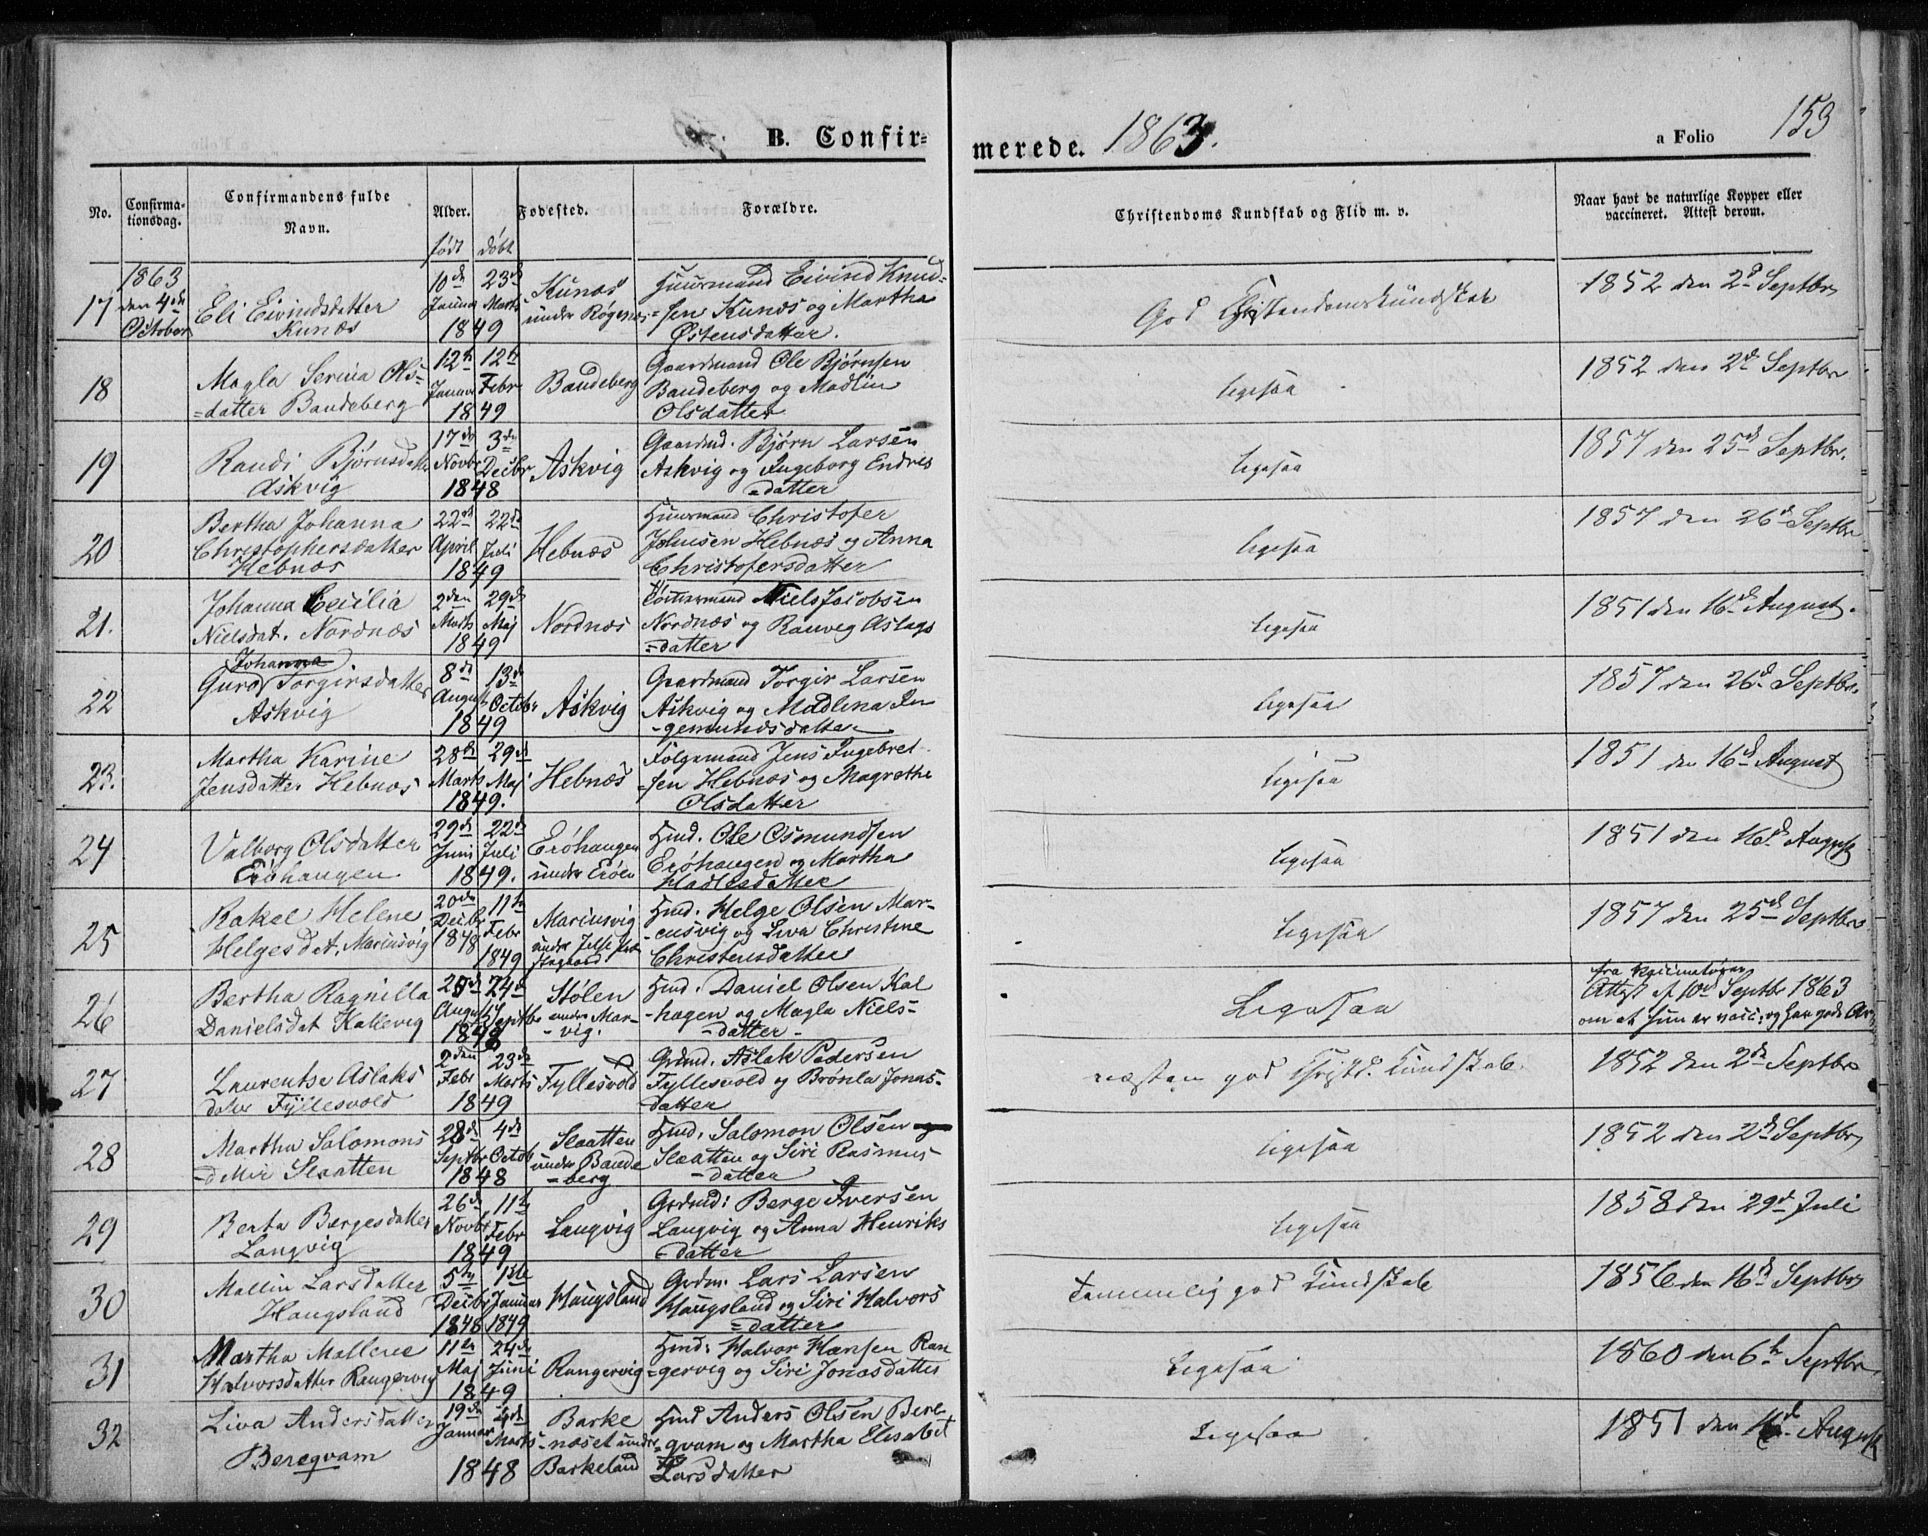 B. Confir=
merede. 1863. a Folio 153
No. Confirma-tionsdag. Confirmandens fulde Navn. Alder. Fødested. Forældre. Christendoms Kundskab og Flid m. v. Naar havt de naturlige Kopper eller vaccineret. Attest derom.
født døbt
17 1863 den 4de October Eli Eivindsdatter Kunæs 10de Januar 23de Marts 1849 Kunæs under Røgenæs Huusmand Eivind Knud=sen Kunæs og Martha Østensdatter. God Christendomskundskab 1852 den 2d Septbr
18 Magla Serina Ols=datter Bandeberg 12te Januar 12te Febr 1849 Bandeberg Gaardmand Ole Bjørnsen Bandeberg og Madlin Olsdatter Ligesaa 1852 den 2de Septbr
19 Randi Bjørnsdatter Askvig 17de Novbr 3de Decbr 1848 Askvig Gaardmd. Bjørn Larsen Askvig og Ingeborg Endres=datter Ligesaa 1857 den 25de Septbr.
20 Bertha Johanna Christophersdatter Hebnæs 22de April 22de Juli 1849 Hebnæs Huusmand Christofer Johnsen Hebnæs og Anna Christofersdatter Ligesaa 1857 den 26d Septbr
21. Johanna Cecilia Nielsdat. Nordnæs 2den Marts 29de Maj 1849 Nordnæs Niels Jacobsen Nordnæs og Ranveg Aslags=datter Ligesaa 1851 den 16de August.
22 Guro Johanna Torgirsdatter Askvig 8de August 13de Octobr 1849 Askvig Gaardmand Torgir Larsen Askvig og Madlena In-gemundsdatter Ligesaa 1857 den 26d. Septbr.
23. Martha Karine Jensdatter Hebnæs 28de Marts 29de Maj 1849. Hebnæs Følgemand Jens Ingebret=sen Hebnæs og Magrethe Olsdatter Ligesaa 1851 den 16de August
24 Valborg Olsdatter Erøhaugen 29de Juni 22de Juli 1849. Erøhaugen under Erøen Hmd. Ole Osmundsen Erøhaugen og Martha Hadlesdatter Ligesaa 1851 den 16de August
25 Rakel Helene Helgesdat. Mariusvig 20de Decbr 1848 11te Febr 1849 Mariusvig under Jelse Præstegaard Hmd. Helge Olsen Mar-cusvig og Liva Christine Christensdatter Ligesaa 1857 den 25de Septbr
26 Bertha Ragnilla Danielsdat Kallevig August 24de Septbr Stølen under Mar-vig. Hmd. Daniel Olsen Kal-hagen og Magla Niels-datter Ligesaa fra Vaccinatøren Attest af 10de Septbr 1863 om at hun er vacc. og har gode Ar
27 Laurentse Aslaksdatter Fyllesvold 2den Febr 23de Marts 1849 Fyllesvold Grdmd. Aslak Pedersen Fyllesvold og Brønla Jonas-datter næsten god Christ. Kundskab. 1852 den 2de Septbr
28 Martha Salomons-datter Slaatten 28de Septbr 4de Octob 1848 Slaatten under Bande-berg Hmd. Salomon Olsen Slaatten og Siri Rasmus-datter Ligesaa 1852 den 2de Septbr
29 Berta Bergesdatter Langvig 26de Novbr 11te Febr 1849 Langvig Grdmd: Berge Iversen Langvig og Anna Henriks=datter Ligesaa 1858 den 29d Juli
30 Mallin Larsdatter Haugsland 5te Decbr 1848 1ste Januar 1849 Haugsland Grdm. Lars Larsen Haugsland og Siri Halvors=datter Temmelig god Kundskab 1856 den 16d Septbr
31 Martha Mallene Halvorsdatter Rangervig 11te Maj 24de Juni 1849 Rangervig Hmd: Halvor Hansen Ran-gervig og Siri Jonasdatter Ligesaa 1860 den 6te Septbr
32 Liva Andersdatter Bereqvam 19de Januar 4de Marts 1848 Barke-næset under Barkeland Hmd Anders Olsen Bere-qvam og Martha Elisabet Larsdatter Ligesaa 1851 den 16de August